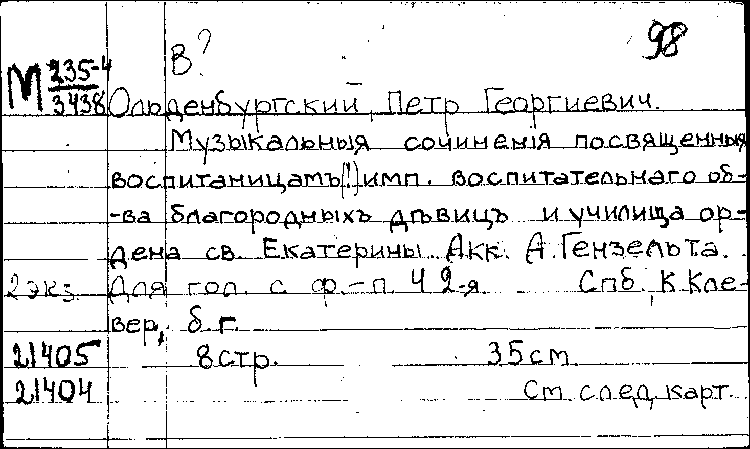 В? 98
М 235-4/3438 Ольденбургский, Петр Георгиевич.
Музыкальныя сочиненія посвященныя
воспитаницамъ[!] имп. воспитательнаго об-
-ва благородныхъ дѣвицъ и училища ор-
дена св. Екатерины. Акк. А. Гензельта.
2 экз. Для гол. с ф.-п. Ч 2-я Спб, К. Кле-
вер, б. г.
21405 8 стр. 35 cm
21404 См. след. карт.